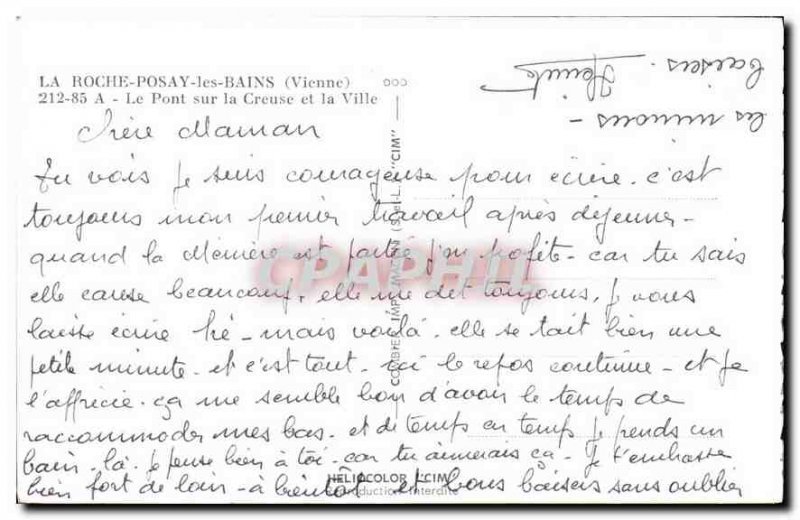 LA ROCHE-POSAY-les-BAINS (Vienne)
212-85 A - Le Pont sur la Creuse et la Ville
Chère Maman
Tu vois je suis courageuse pour écrire. c'est
toujours mon premier travail après déjeuner -
quand la Mémère est partie j'en profite - car tu sais
elle cause beaucoup, elle me dit toujours, je vous
laisse écrire hé - mais voilà. elle se tait bien une
petite minute - et c'est tout. ici le repos continue - et je
l'apprécie. ça me semble bon d'avoir le temps de
raccommoder mes bas. et de temps en temps je prends un
bain. là. je pense bien à toi - car tu aimerais ça. Je t'embrasse
bien fort de loin - à bientôt et bons baisers sans oublier
les minous -
baisers.
COMBIER IMP. MACON (S.-et-L.) "CIM"
HELIOCOLOR "CIM"
Reproduction interdite
CPAPHIL